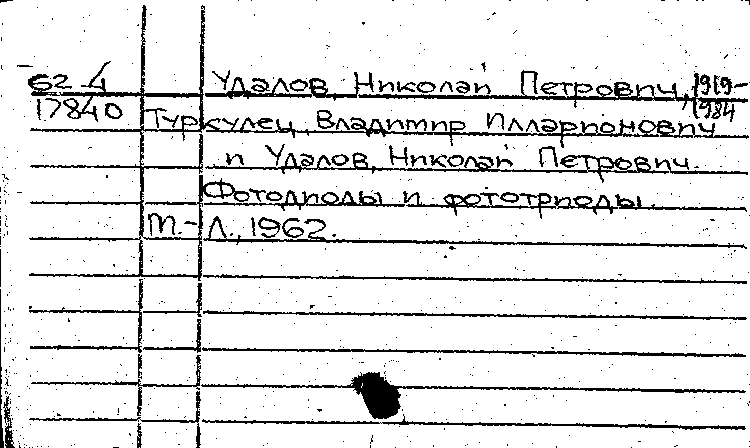 62-4 Удалов, Николай Петрович, 1919-
17840 1984
Туркулец, Владимир Илларионович
и Удалов, Николай Петрович.
Фотодиоды и фототриоды.
М.-Л., 1962.